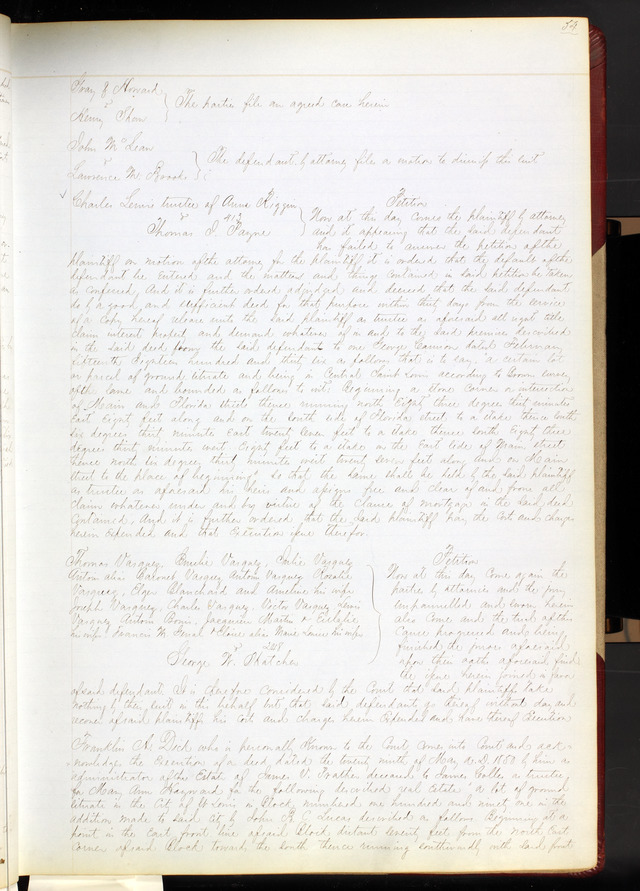 54
Gray & Howard
vs
Henry Thom
The parties file an agreed case herein
John McLean
vs
Lawrence M. Broads
The defendant by attorney files a motion to dismiss this suit
Charles Lewis trustee of Anna Riggin
vs 412
Thomas J. Payne
Petition
Now at this day comes the plaintiff by attorney
and it appearing that the said defendant
has failed to answer the petition of the
plaintiff on motion of the attorney for the plaintiff it is ordered that the default of the
defendant be entered and the matters and things contained in said petition be taken
as confessed. And it is further ordered adjudged and decreed that the said defendant
do by a good and sufficient deed for that purpose within thirty days from the service
of a copy hereof release unto the said plaintiff as trustee as aforesaid all right title
claim interest and demand whatsoever of in and to the said premises described
in the said deed from the said defendant to one George Cannon dated February
fifteenth Eighteen hundred and fifty six as follows that is to say, a certain lot
or parcel of ground situate and being in Central Saint Louis according to
of the same and bounded as follows to wit Beginning a stone corner or intersection
of Main and Florida streets thence running north Eighty three degrees thirty minutes
East eighty feet along and on the south side of Florida street to a stake thence South
six degrees thirty minutes East twenty seven feet to a stake thence south Eighty three
degrees thirty minutes west Eighty feet to a stake on the East side of Main street
thence north six degrees thirty minutes west twenty seven feet along and on Main
street to the place of beginning, so that the same shall be held by the said plaintiff
as trustee as aforesaid his heirs and assigns free and clear of and from all
claim whatever under and by virtue of the clause of mortgage in the said deed
contained. And it is further ordered that the said plaintiff pay the costs and charges
herein expended and that execution issue therefor.
Thomas Vasquez, Emilie Vasquez, Julie Vasquez
Antoine alias Baronet Vasquez Antoine Vasquez Rosalie
Vasquez, Elzer Blanchard and Emeline his wife
Joseph Vasquez, Charles Vasquez, Victor Vasquez, Louis
Vasquez, Antoine Bonis, Jacques Martin & Eulalie
his wife
vs
George W. Thatcher
Petition
Now at this day come again the
parties by attorneys and the jury
empannelled and sworn herein
also come and the trial of this
cause progressed and being
finished the jurors aforesaid
upon their oaths aforesaid find
the issue herein joined in favor
of said defendant It is therefore considered by the Court that said plaintiffs take
nothing by their suit in this behalf but that said defendant go thereof without day and
recover of said plaintiffs his costs and charges herein expended and have thereof Execution
Franklin A. Dick who is personally known to the Court, comes into Court and ack-
nowledges the execution of a deed, dated the twenty ninth of May A.D 1860 by him as
administrator of the Estate of James V. Prather deceased to James trustee
for Mary Ann Hayward for the following described real estate, a lot of ground
situate in the City of St Louis in Block, numbered one hundred and ninety one in the
addition made to said City by John B. C. Lucas described as follows, Beginning at a
point in the East front line of said Block distant seventy feet from the North East
corner of said Block towards the south thence running southwardly with said front